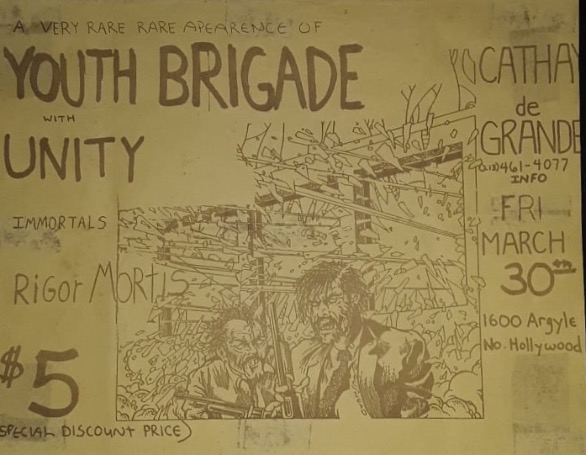 A VERY RARE RARE APEARENCE OF
YOUTH BRIGADE
WITH
UNITY
IMMORTALS
RIGOR MORTIS
$5
SPECIAL DISCOUNT PRICE)
CATHAY
de
GRANDE
(213)461-4077
INFO
FRI
MARCH
30th
1600 Argyle
No. Hollywood